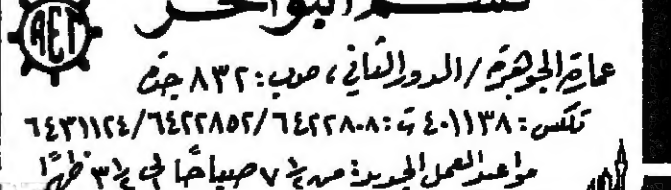 قسم البواخر
عمارة الجوهرة / الدور الثاني ، ص.ب: ٨٣٢ جدة
تلكس: ٤٠١١٣٨ ت: ٦٤٢٢٨٠٨/٦٤٢٢٨٥٢/٦٤٣١١٢٤
مواعيد العمل الجديدة من ½ ٧ صباحًا الى ½ ٣ ظهرًا